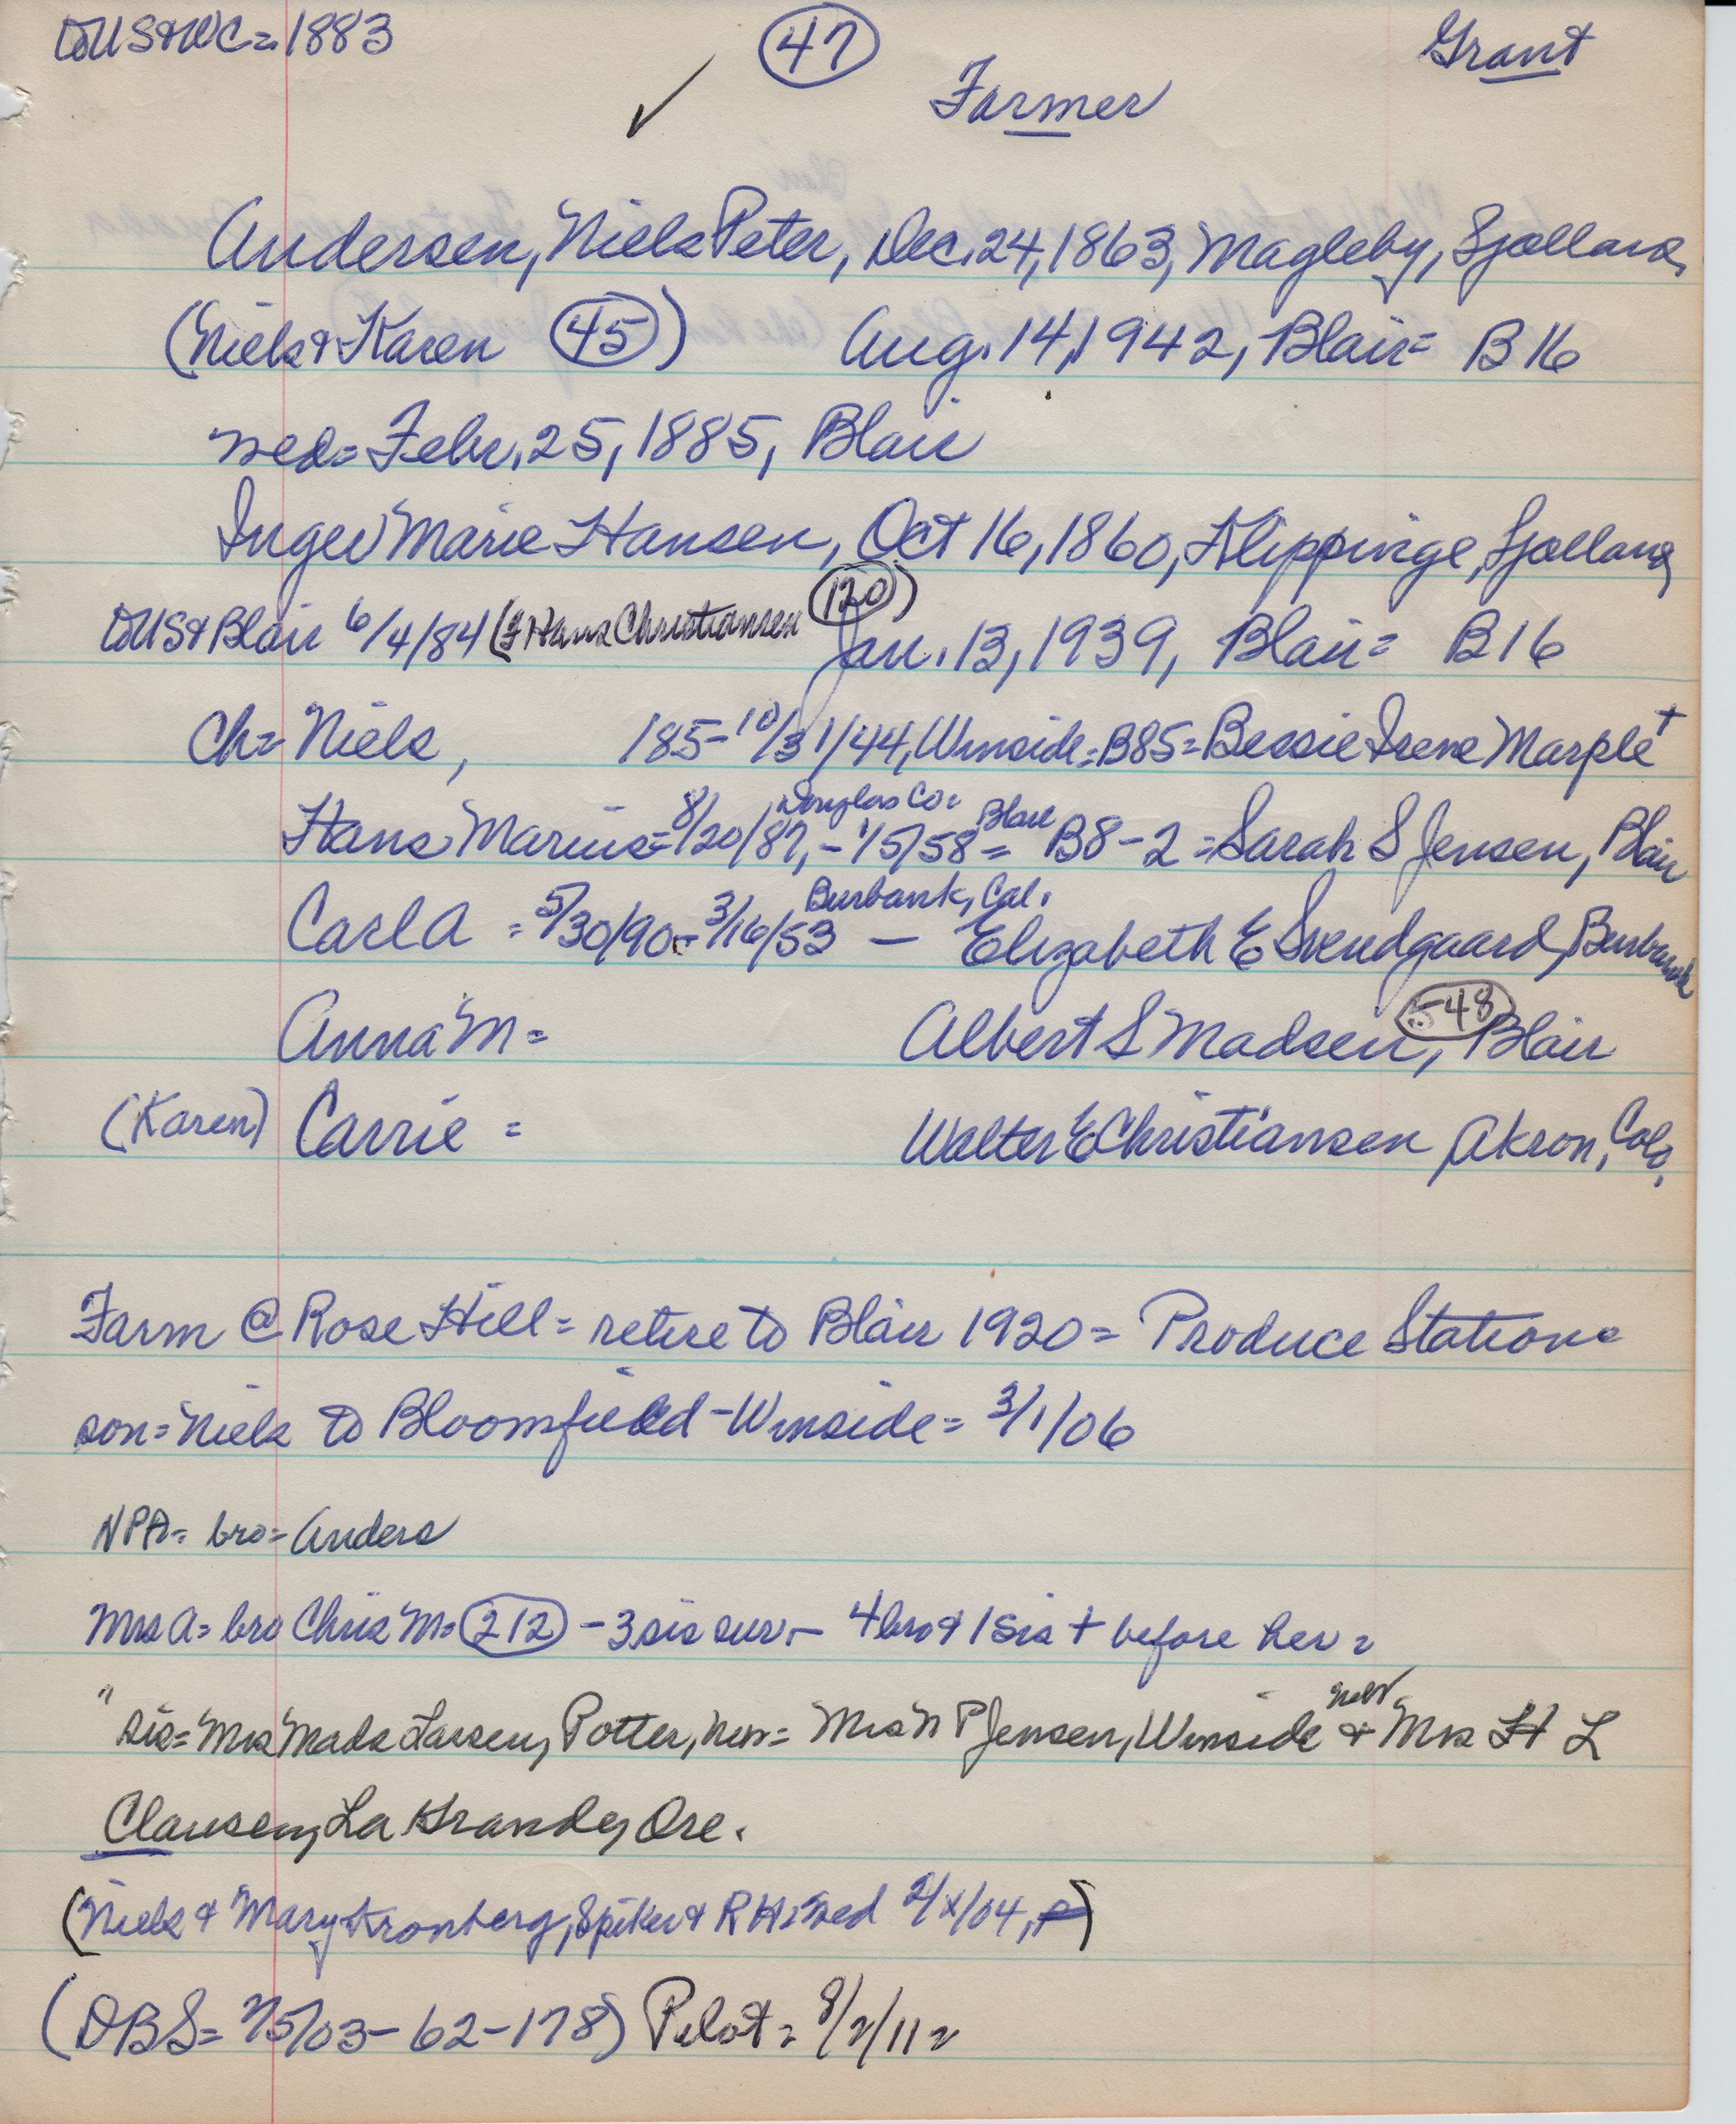 to US & WC = 1883
47
Grant
Farmer
Andersen, Niels Peter, Dec. 24, 1863, Magleby, Sjælland,
(Niels & Karen 45) Aug. 14, 1942, Blair = B16
wed = Febr. 25, 1885, Blair
Inger Marie Hansen, Oct 16, 1860, Klippinge, Sjælland
to US & Blair 6/4/84 (Hans Christiansen 120) Jan. 13, 1939, Blair = B16
Ch = Niels, 185-10/31/44, Winside = B85 = Bessie Irene Marple +
Douglas Co = Blair
Hans Marius = 8/20/87, - 1/5/58 = B8-2 = Sarah S Jensen, Blair
Burbank, Cal.
Carl A = 5/30/90 - 3/16/53 - Elizabeth E Svendgaard, Burbank
Anna M = Albert S Madsen, 548 Blair
(Karen) Carrie = Walter E Christiansen Akron, Colo,
Farm @ Rose Hill = retire to Blair 1920 = Produce Station =
son = Niels to Bloomfield - Winside = 3/1/06
NPA = bro = Anders
Mrs A = bro Chris M = 212 - 3 sis sur - 4 bro & 1 sis + before her =
" sis = Mrs Mads Larsen, Potter, Mrs N P Jensen, Winside & Mrs H L
Clausen, La Grande, Ore.
(Niels & Mary Kronberg, Spiker & RH = wed 2/x/04,)
(DBS = 75/03-62-178) Pilot = 8/2/11 =